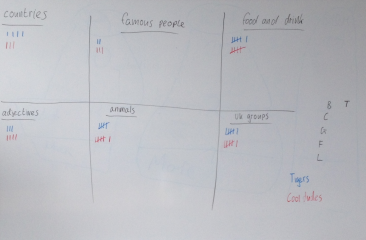 countries
famous people
food and drink
adjectives
animals
UK groups
B T
C
G
F
L
Tigers
Cool